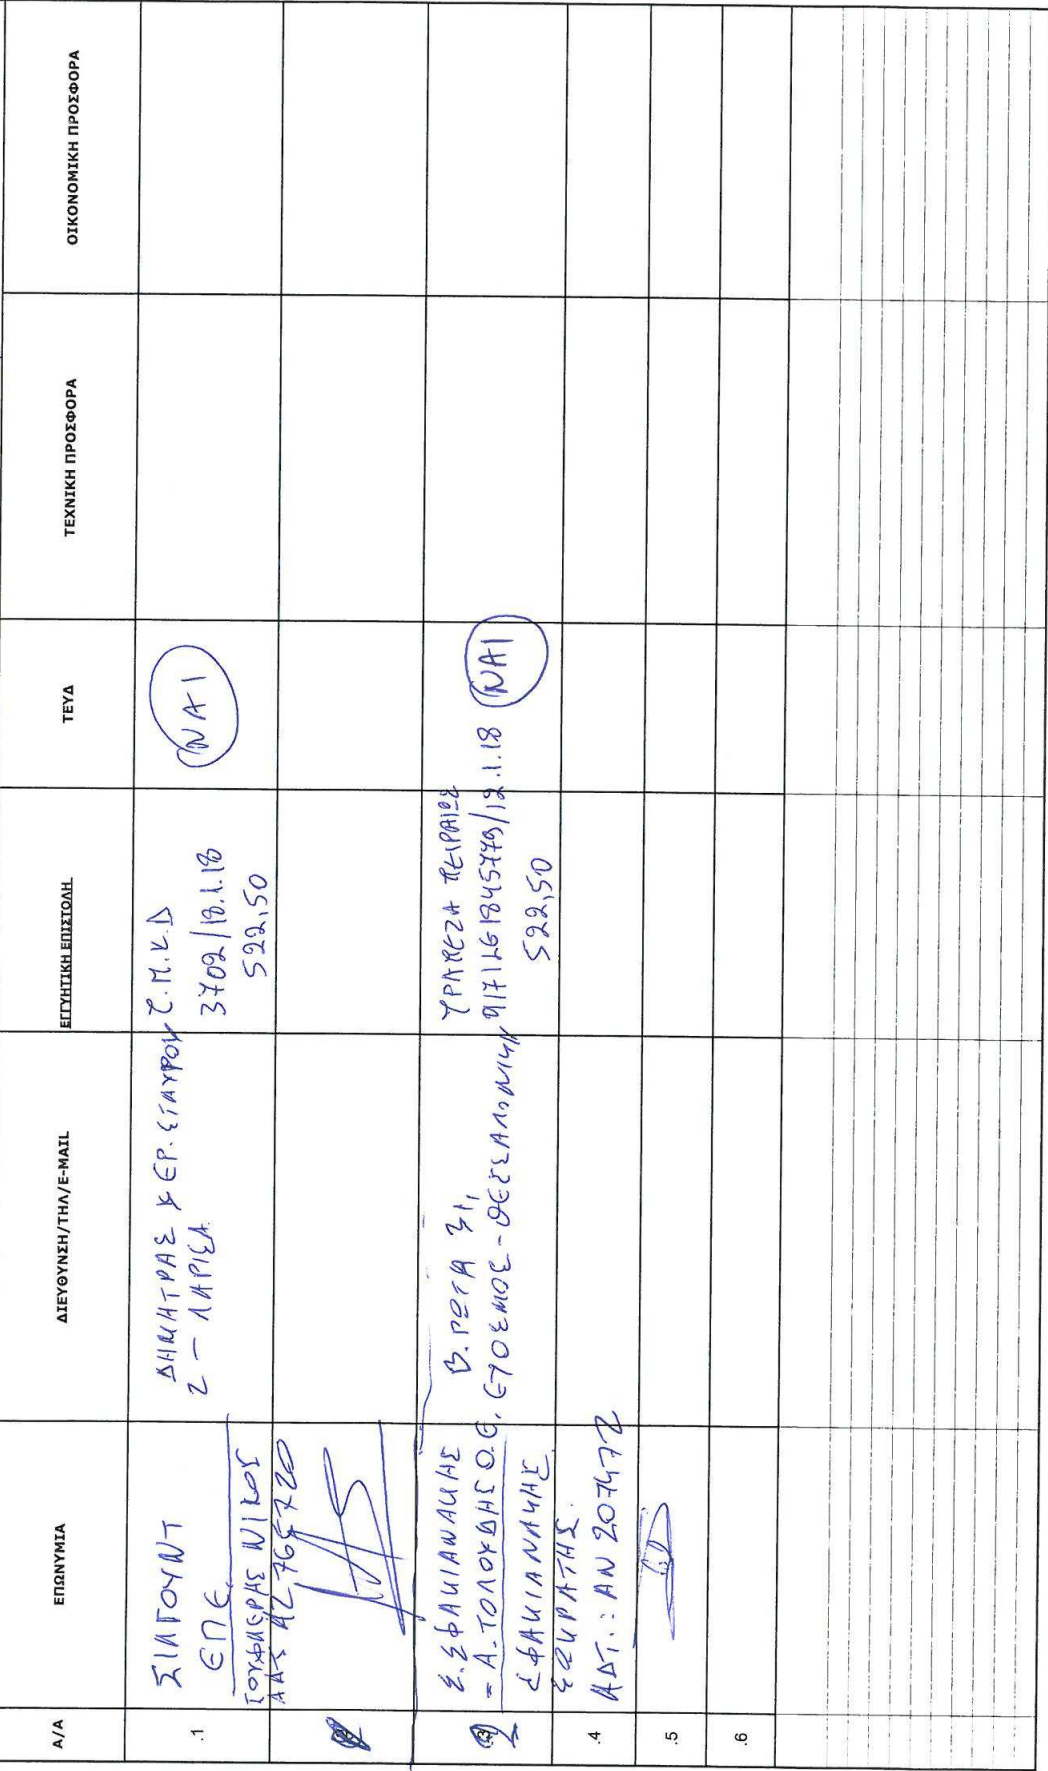 Α/Α
ΕΠΩΝΥΜΙΑ
ΔΙΕΥΘΥΝΣΗ/ΤΗΛ/E-MAIL
ΕΓΓΥΗΤΙΚΗ ΕΠΙΣΤΟΛΗ
ΤΕΥΔ
ΤΕΧΝΙΚΗ ΠΡΟΣΦΟΡΑ
ΟΙΚΟΝΟΜΙΚΗ ΠΡΟΣΦΟΡΑ
.1
ΣΙΛΓΟΥΝΤ
ΕΠΕ
ΝΙΚΟΣ
ΔΗΜΗΤΡΑΣ & ΕΡ. ΣΤΑΥΡΟΥ
2 - ΛΑΡΙΣΑ
3702/18.1.18
522,50
ΝΑΙ
2
Σ. ΣΦΑΚΙΑΝΑΚΗΣ
- Α. ΤΟΛΟΥΔΗΣ Ο.Ε.
ΣΦΑΚΙΑΝΑΚΗΣ
ΣΩΚΡΑΤΗΣ
ΑΔΤ.: ΑΝ 207472
Β. ΡΩΤΑ 31,
ΕΥΟΣΜΟΣ - ΘΕΣΣΑΛΟΝΙΚΗ
ΤΡΑΠΕΖΑ ΠΕΙΡΑΙΩΣ
917LG1845779/12.1.18
522,50
ΝΑΙ
.4
.5
.6